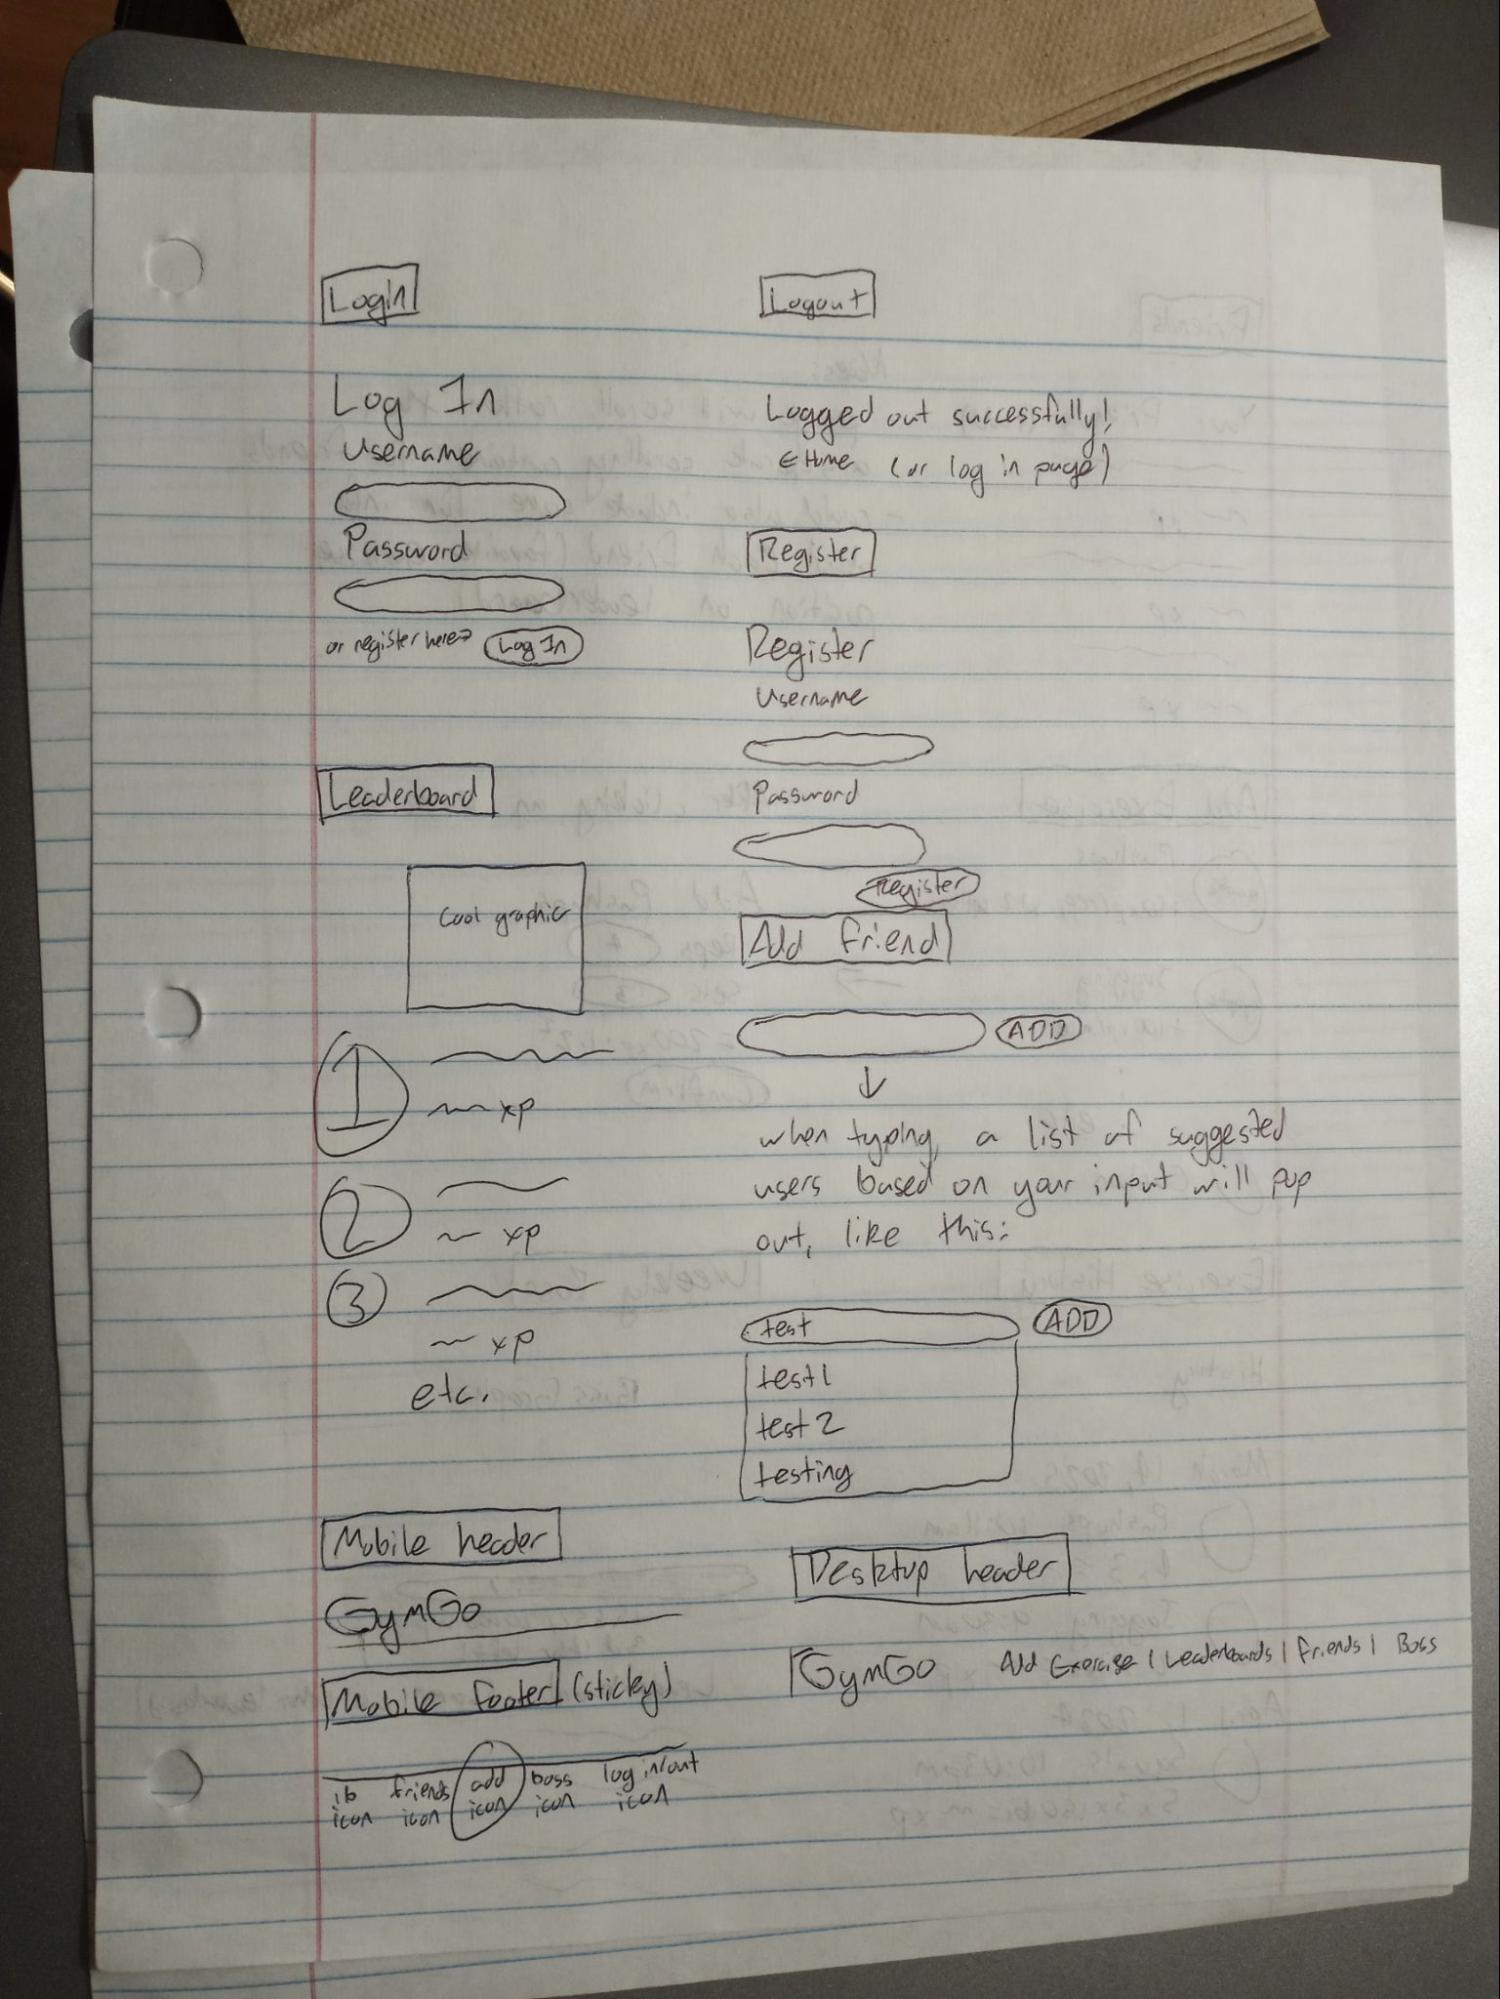 Login
Log In
Username
Password
or register here→ Log In
Leaderboard
Cool graphic
1
~ xp
2
~ xp
3
~ xp
etc.
Mobile header
GymGo
Mobile footer (sticky)
lb icon
friends icon
add icon
boss icon
log in/out icon
Logout
Logged out successfully!
← Home (or log in page)
Register
Register
Username
Password
Register
Add friend
ADD
↓
when typing, a list of suggested
users based on your input will pop
out, like this:
test ADD
test1
test 2
testing
Desktop header
GymGo Add Exercise | Leaderboards | Friends | Boss